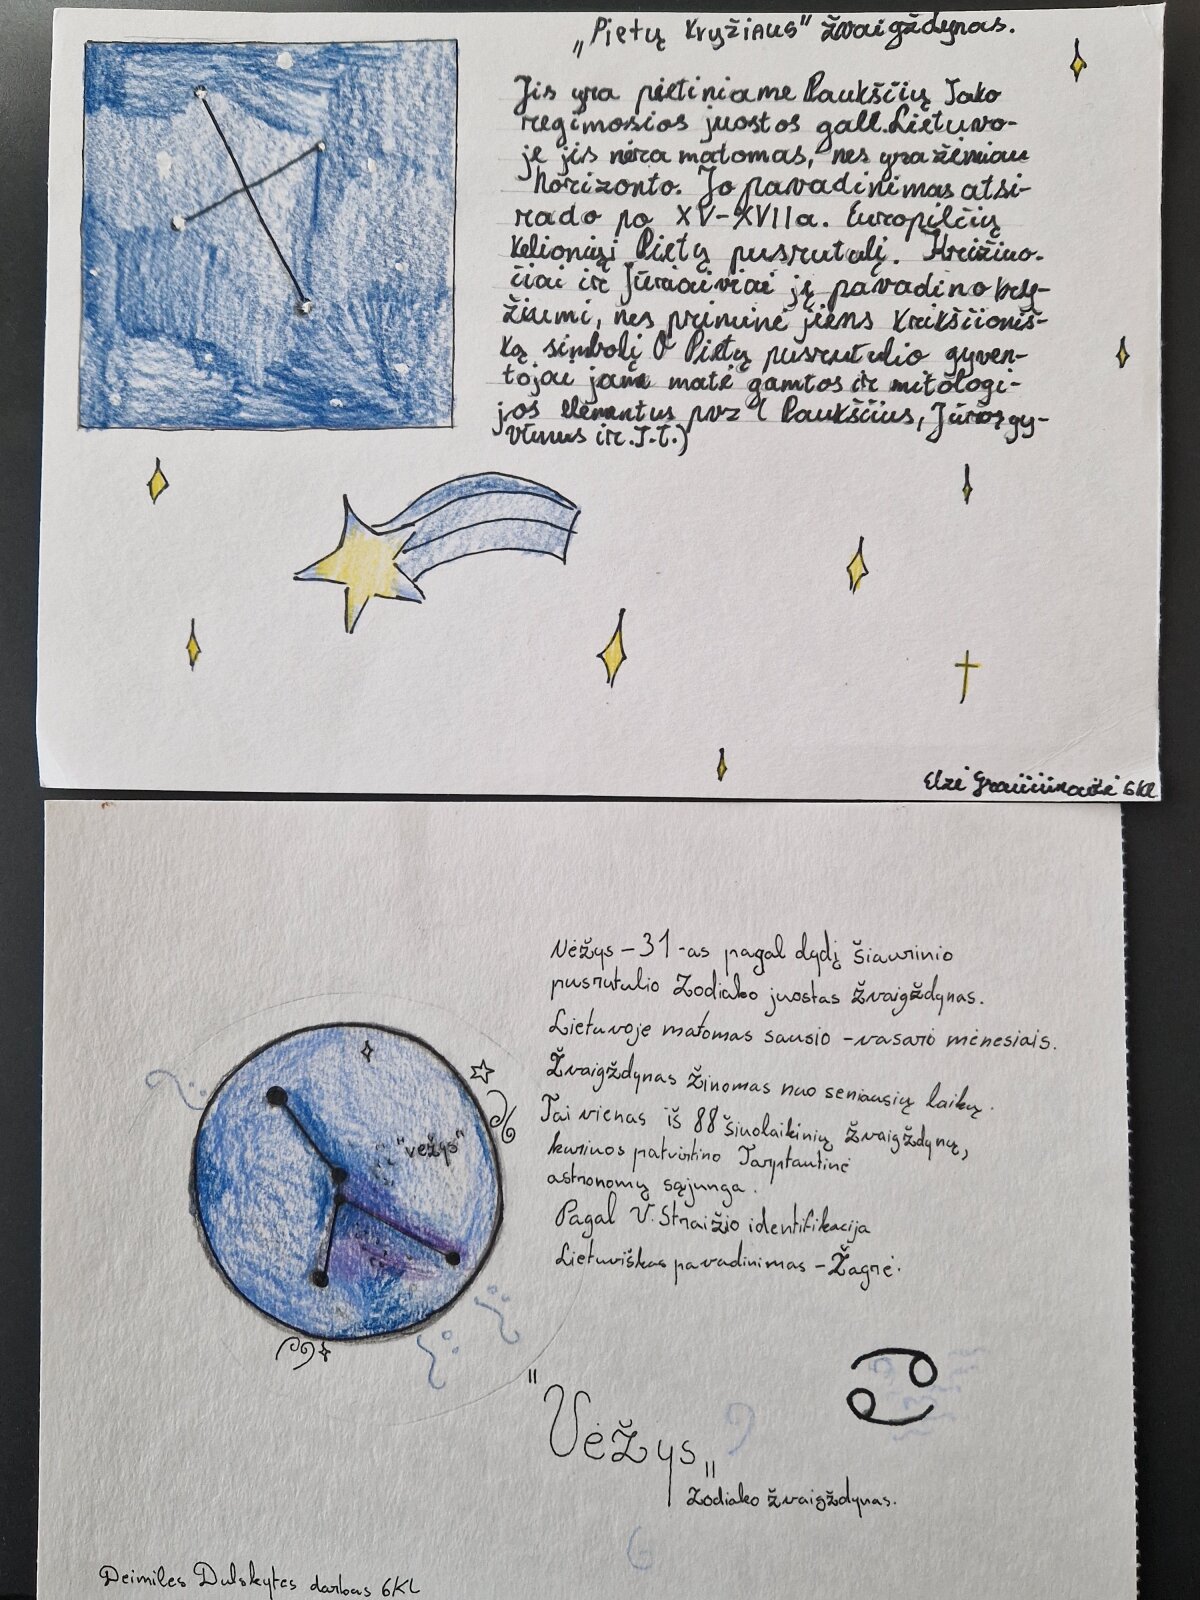 „Pietų Kryžiaus" žvaigždynas.
Jis yra pietiniame Paukščių Tako
regimosios juostos gale. Lietuvo-
je jis nėra matomas, nes yra žemiau
horizonto. Jo pavadinimas atsi-
rado po XV-XVII a. Europiečių
kelionių į Pietų pusrutulį.
čiai ir Jūrininkai jį pavadino kry-
žiumi, nes priminė jiems krikščioniš-
ką simbolį O Pietų pusrutulio gyven-
tojai jame matė gamtos ir mitologi-
jos elementus pvz ( Paukščius, Jūros gy-
vūnus ir. T.T.)
Elzė 6KL
Vėžys – 31-as pagal dydį šiaurinio
pusrutulio Zodiako juostas žvaigždynas.
Lietuvoje matomas sausio – vasario mėnesiais.
Žvaigždynas žinomas nuo seniausių laikų.
Tai vienas iš 88 šiuolaikinių žvaigždynų,
kuriuos patvirtino Tarptautinė
astronomų sąjunga.
Pagal V. Straižio identifikacija
Lietuviškas pavadinimas – Žagrė.
"vėžys"
"Vėžys"
Zodiako žvaigždynas.
Deimilės Dulskytės darbas 6KL